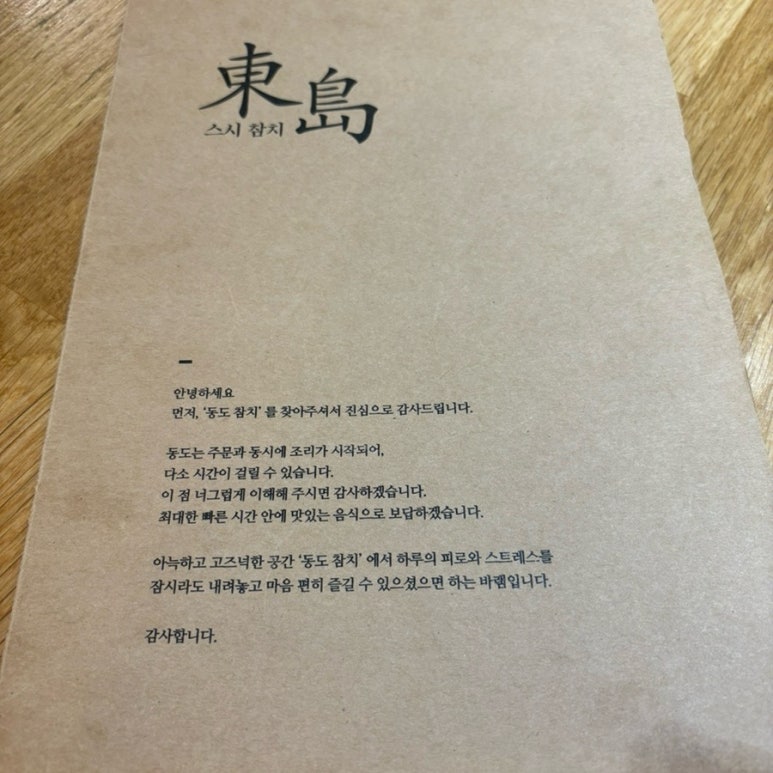 東島
스시 참치
안녕하세요
먼저, '동도 참치' 를 찾아주셔서 진심으로 감사드립니다.
동도는 주문과 동시에 조리가 시작되어,
다소 시간이 걸릴 수 있습니다.
이 점 너그럽게 이해해 주시면 감사하겠습니다.
최대한 빠른 시간 안에 맛있는 음식으로 보답하겠습니다.
아늑하고 고즈넉한 공간 '동도 참치' 에서 하루의 피로와 스트레스를
잠시라도 내려놓고 마음 편히 즐길 수 있으셨으면 하는 바램입니다.
감사합니다.